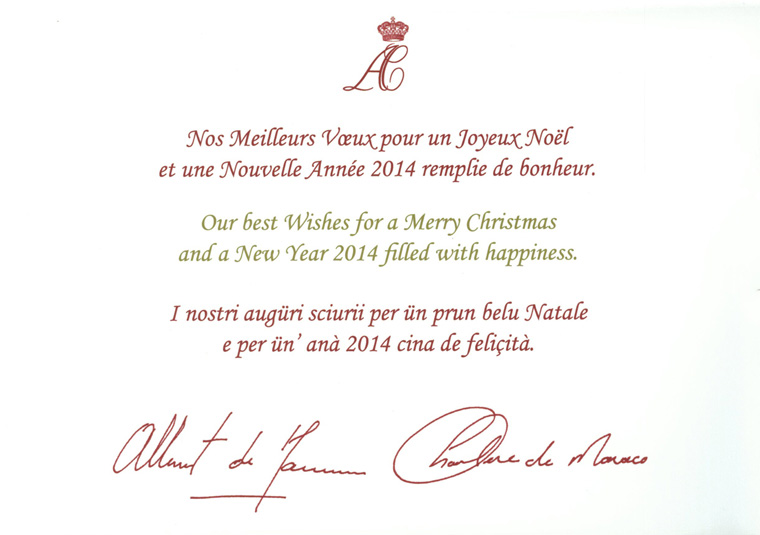 AC
Nos Meilleurs Vœux pour un Joyeux Noël
et une Nouvelle Année 2014 remplie de bonheur.
Our best Wishes for a Merry Christmas
and a New Year 2014 filled with happiness.
I nostri augüri sciurii per ün prun belu Natale
e per ün' anà 2014 cina de feliçità.
Albert de Monaco Charlène de Monaco